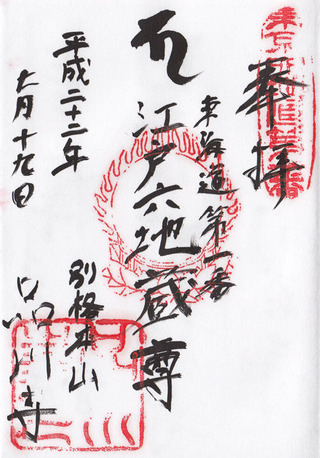 奉拝
東海道第一番
江戸六地蔵尊
別格本山
品川寺
平成二十二年
七月十九日